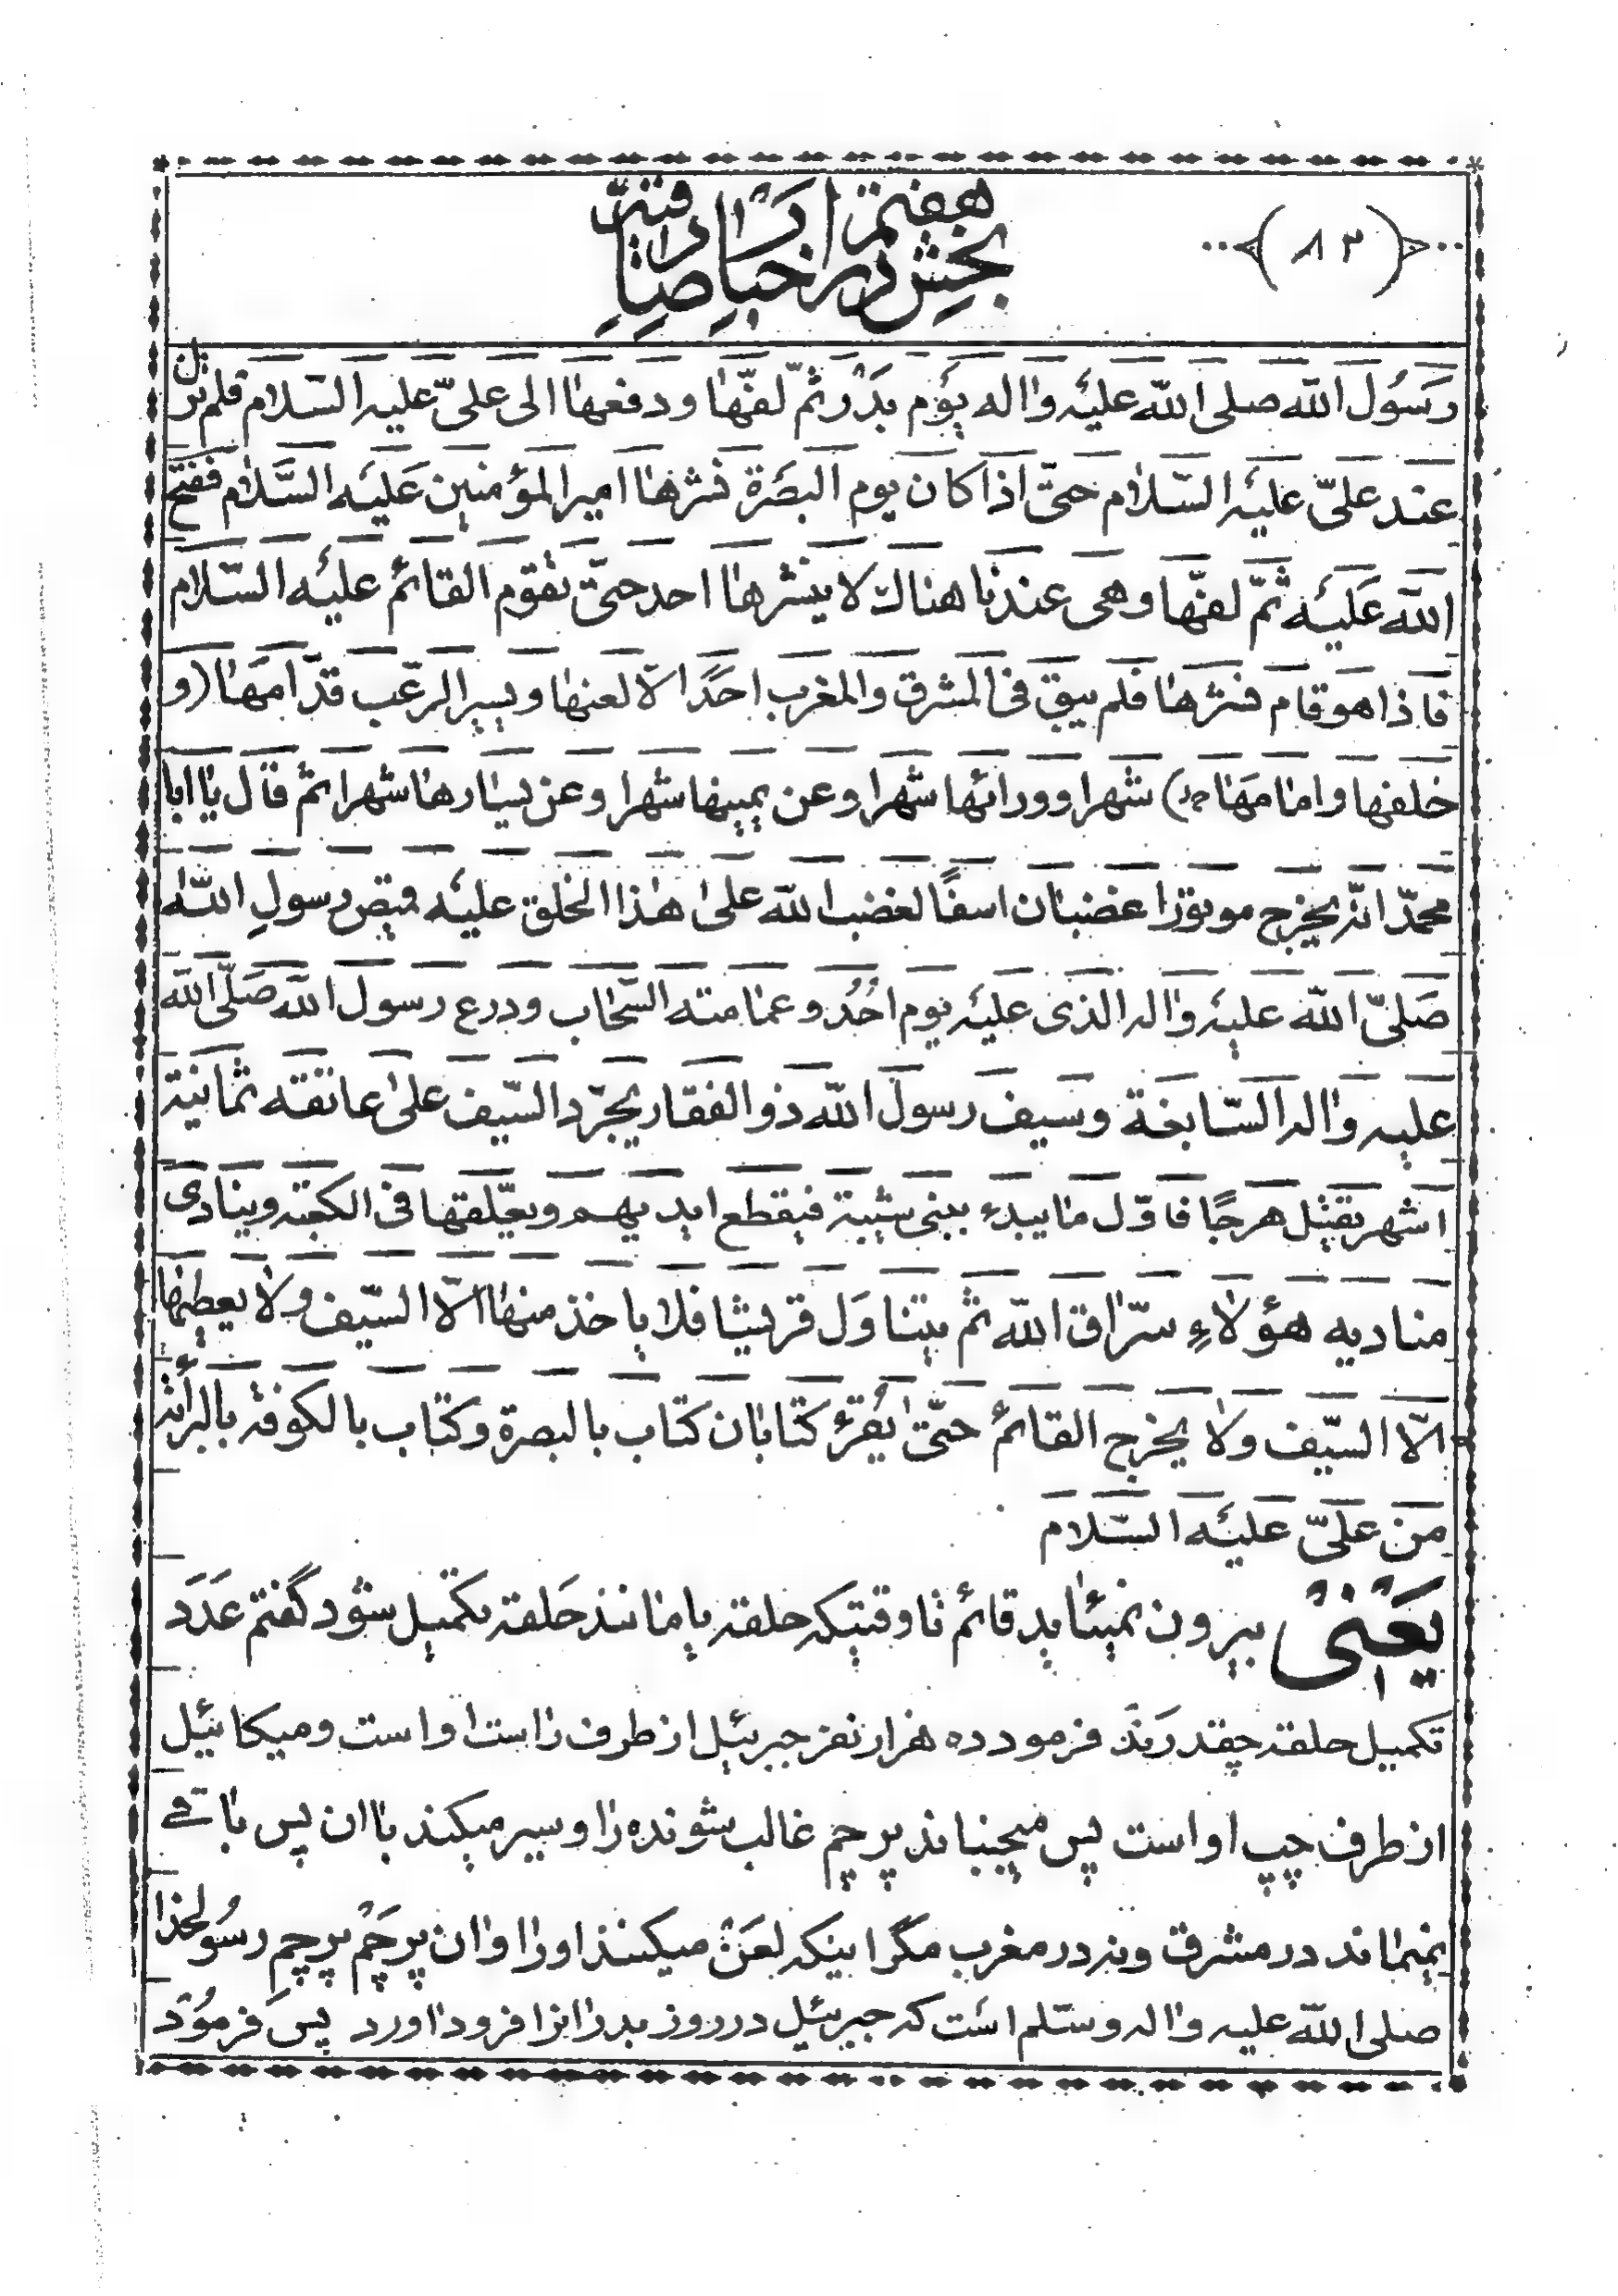 ﴿ ٨٢ ﴾
بخش هفتم در اخبار صادقیه
رَسُول اللّه صلی اللّه علیه واله یَوْم بَدْر ثمّ لفّها ودفعها الی علیّ علیه السّلام فلم تزل
عند علیّ علیه السّلام حتّی اذا کان یوم البصَرة نشرها امیر المؤمنین عَلیَه السَّلام ففتح
اللّه عَلَیه ثمّ لفّها وهی عندنا هناك لا ینشرها احد حتّی یقوم القائم علیه السّلام
فاذا هو قام نشرها فلم یبق فی المشرق والمغرب احَدًا الّا لعنها ویسیر الرعب قدّامَها (و
خلفها وامامَها) شهرا وورائها شهرا وعن یمینها شهرا وعن یسارها شهرا ثم قال یا ابا
محمّد انّه یخرج موتورًا غضبان اسفًا لغضب اللّه علیٰ هٰذا الخلق علیه قمیص رسولِ اللّه
صَلیّ اللّه علیه واله الذی علیه یوم اُحُد وعمامته السّحاب ودرع رسول اللّه صَلّی اللّه
علیه واله السّابغة وسیف رسول اللّه ذو الفقار یجرّد السّیف علیٰ عاتقه ثمانیة
اشهر یقتل هرجًا فاوّل ما یبدء ببنی شیبة فیقطع ایدیهم ویعلّقها فی الکعبة وینادی
منادیه هؤلاءِ سرّاق اللّه ثم یتناوَل قریشا فلا یاخذ منها الّا السّیف ولا یعطیها
الّا السّیف ولا یخرج القائم حتّیٰ یُقرَء کتابان کتاب بالبصرة وکتاب بالکوفة بالبرائة
من علیّ علیه السّلام
یَعْنی بیرون نمیئاید قائم تا وقتیکه حلقه یا مانند حَلقه تکمیل شود گفتم عَدَد
تکمیل حلقه چقدرند فرمود ده هزار نفر جبرئیل از طرف راست او است ومیکائیل
از طرف چپ او است پس میجنباند پرچم غالب شونده را وسیر میکند با ان پس باقی
نمیماند در مشرق ونه در مغرب مگر اینکه لعَنْ میکنند او را وان پرچَم پرچم رسُولخدا
صلی اللّه علیه واله وسّلم است که جبرئیل در روز بدر انرا فرود اورد پس فرمُود